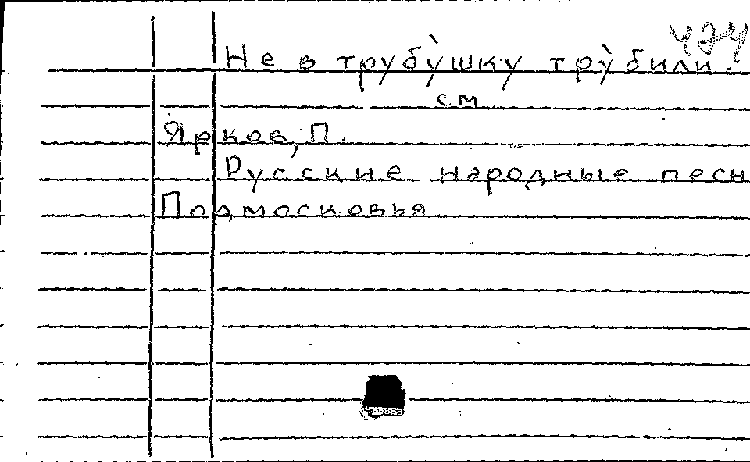 424
Не в трубушку трубили.
см
Ярков, П.
Русские народные песн
Подмосковья